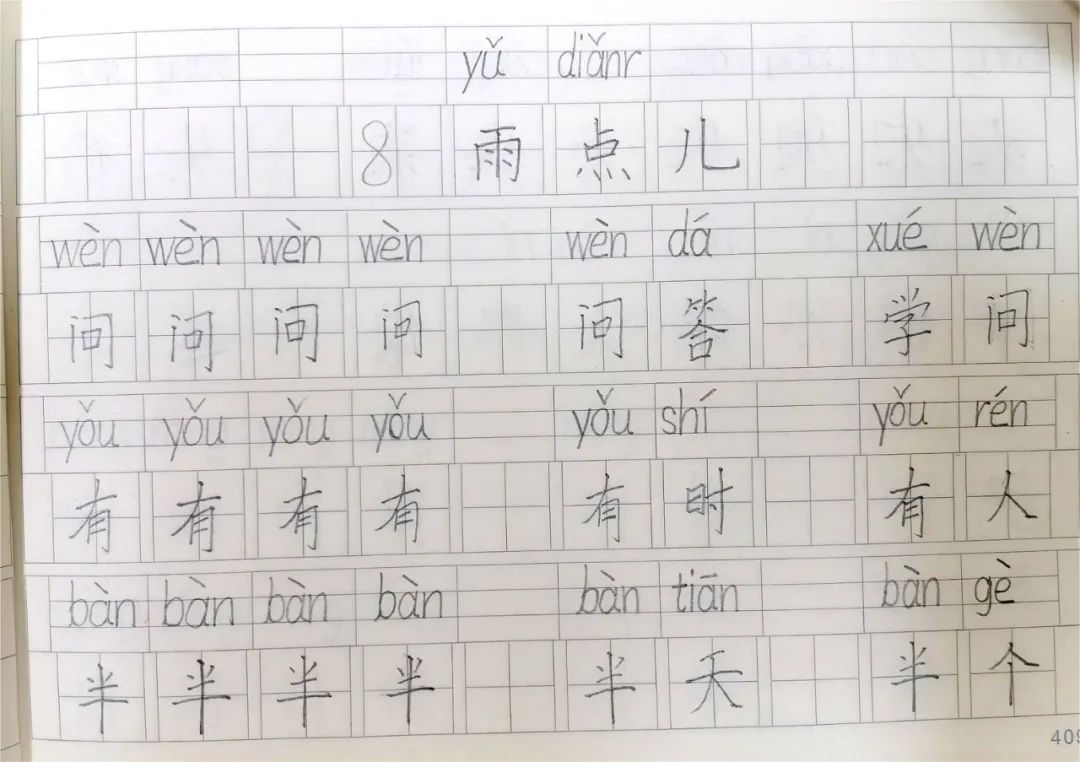 yǔ diǎnr
8 雨 点 儿
wèn wèn wèn wèn wèn dá xué wèn
问 问 问 问 问 答 学 问
yǒu yǒu yǒu yǒu yǒu shí yǒu rén
有 有 有 有 有 时 有 人
bàn bàn bàn bàn bàn tiān bàn gè
半 半 半 半 半 天 半 个
409